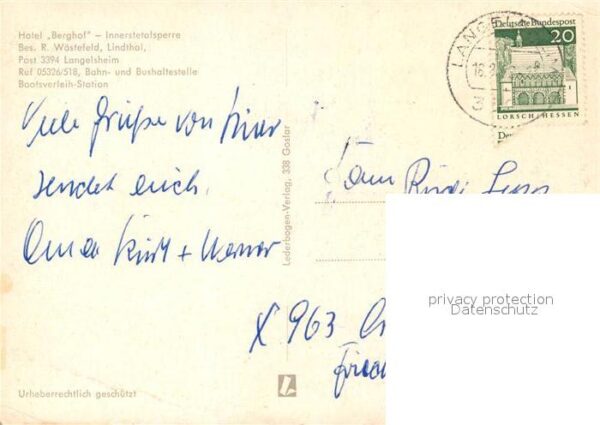 Hotel „Berghof" – Innerstetalsperre
Bes. R. Wästefeld, Lindthal,
Post 3394 Langelsheim
Ruf 05326/518, Bahn- und Bushaltestelle
Bootsverleih-Station
Viele Grüße von hier
sendet euch.
Oma Kurt + Werner
Lederbogen-Verlag, 338 Goslar
Urheberrechtlich geschützt
LANGEL
Deutsche Bundespost
20
LORSCH/HESSEN
Fam
X 963
privacy protection
Datenschutz